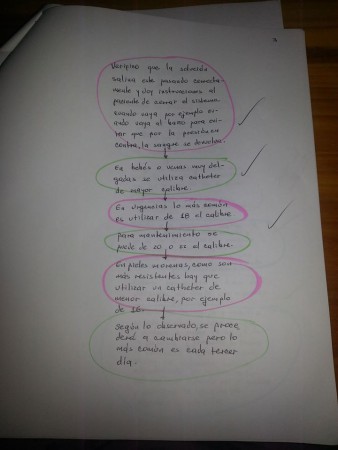 Verifico que la solución
salina este pasando correcta-
mente y doy instrucciones al
paciente de cerrar el sistema
cuando vaya por ejemplo cu-
ando vaya al baño para evi-
tar que por la presión en
contra, la sangre se devuelva.
En bebés o venas muy del-
gadas se utiliza catheter
de mayor calibre.
En urgencias lo más común
es utilizar de 18 al calibre.
para mantenimiento se
puede de 20, o 22 al calibre.
En pieles morenas, como son
más resistentes hay que
utilizar un catheter de
menor calibre, por ejemplo
de 16.
Según lo observado, se proce
derá a cambiarse pero lo
más común es cada tercer
día.